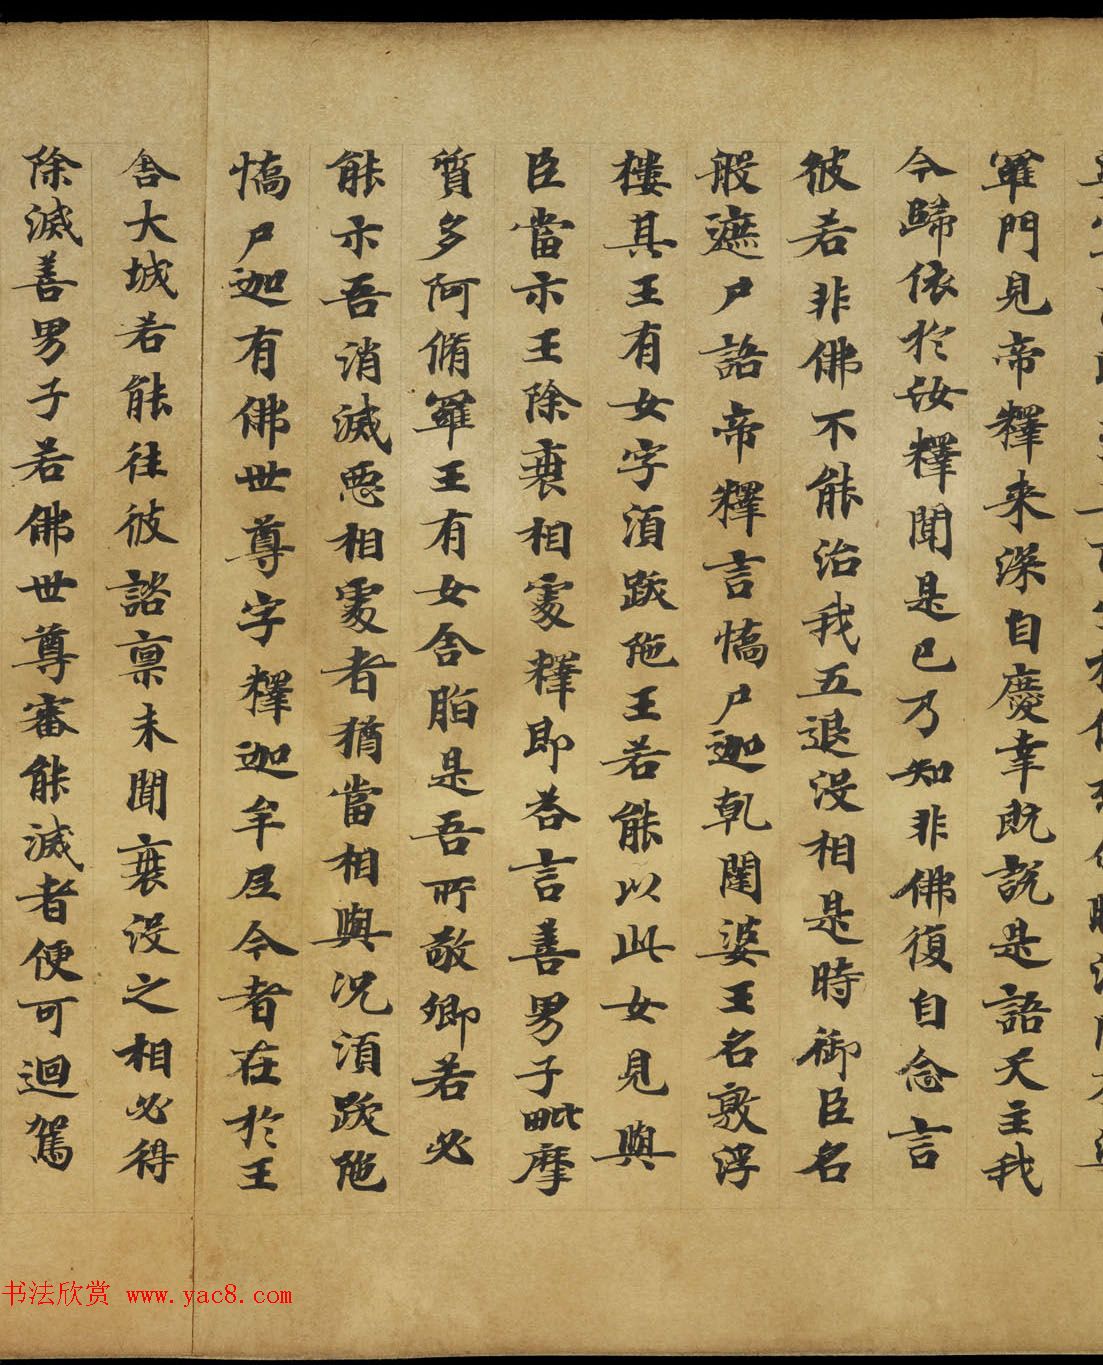 羅門見帝釋来深自慶幸既說是語天主我
令歸依於汝釋聞是已乃知非佛復自念言
彼若非佛不能治我五退没相是時御臣名
般遮尸語帝釋言憍尸迦乹闥婆王名敦浮
樓其王有女字須跋陁王若能以此女見與
臣當示王除衰相處釋即荅言善男子毗摩
質多阿脩羅王有女舍脂是吾所敬卿若必
能示吾消滅惡相處者猶當相與况須跋陁
憍尸迦有佛世尊字釋迦牟尼今者在於王
舍大城若能往彼諮禀未聞衰没之相必得
除滅善男子若佛世尊審能滅者便可迴駕
书法欣赏 www.yac8.com